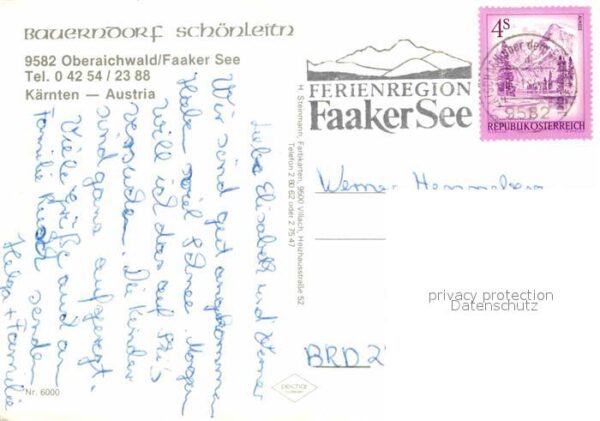 Bauerndorf schönleitn
9582 Oberaichwald/Faaker See
Tel. 0 42 54 / 23 88
Kärnten — Austria
FERIENREGION
Faaker See
4S
ALMSEE
REPUBLIK ÖSTERREICH
9582
H. Steinmann, Farbkarten, 9500 Villach, Heizhausstraße 52
Telefon 2 80 62 oder 2 75 47
Liebe Elisabeth und Werner
Wir sind gut angekommen
Haben viel Schnee. Morgen
will ich das auf Ski's
versuchen. Die Kinder
sind ganz aufgeregt.
Viele Grüße auch an
Familie senden
Helga + Familie
Werner
BRD
privacy protection
Datenschutz
Nr. 6000